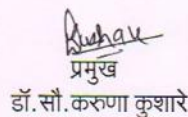 प्रमुख
डॉ.सौ.करुणा कुशारे